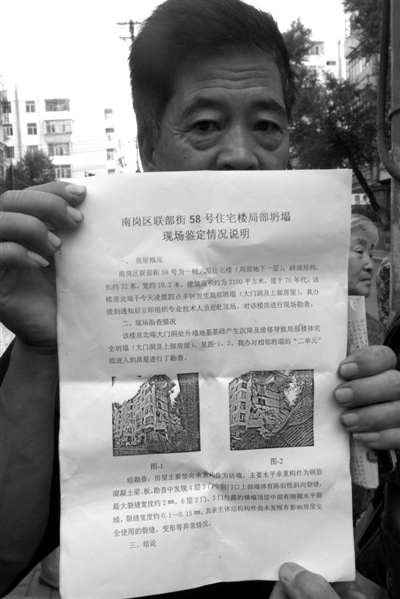 南岗区联部街 58 号住宅楼局部坍塌
现场鉴定情况说明
一、房屋概况
南岗区联部街 58 号为一幢六层住宅楼（局部地下一层），砖混结构，
长约 32 米，宽约 10.2 米，建筑面积约为 2100 平方米，建于 70 年代。该
楼房北端于今天凌晨四点多钟发生局部坍塌（大门洞及上部房屋），我办
接到通知后立即组织专业技术人员赶赴现场，对该楼房进行现场勘查。
二、现场勘查情况
该楼房北端大门洞处外墙地基基础产生沉降及滑移导致局部楼体完
全坍塌（大门洞及上部房屋），见图-1、2。我办对相邻坍塌的“二单元”
能进入的房屋进行了勘查。
图-1
图-2
经勘查，房屋主要竖向承重构件为砖墙，主要水平承重构件为钢筋
混凝土梁、板。勘查中发现 4 层 3 门 门口上部墙体有陈旧性斜向裂缝，
最大裂缝宽度约 2 mm，6 层 2 门、3 门外露的横墙顶层中部有细微水平裂
缝，裂缝宽度约 0.1～0.15 mm，其余主体结构构件尚未发现有影响房屋安
全使用的裂缝、变形等异常情况。
三、结论
1